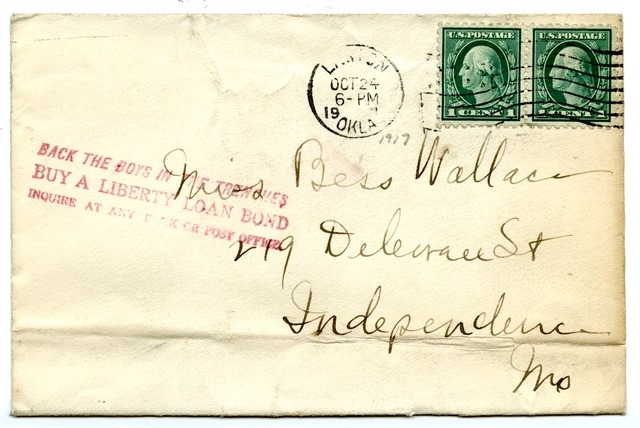 U.S. POSTAGE U.S. POSTAGE
1 CENT 1 1 CENT 1
LAWTON
OCT 24
6-PM
19 7
OKLA
1917
BACK THE BOYS IN THE TRENCHES
BUY A LIBERTY LOAN BOND
INQUIRE AT ANY BANK OR POST OFFICE
Miss Bess Wallace
219 Delaware St
Independence
Mo